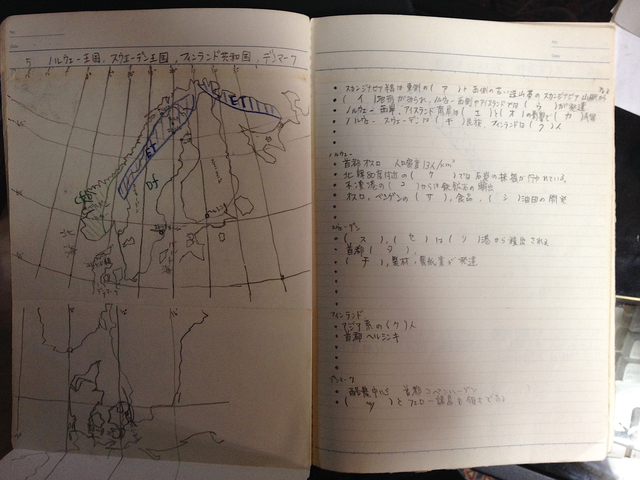 5 ノルウェー王国, スウェーデン王国, フィンランド共和国, デンマーク
ET
ET
Df
スカンジナビア半島は東側の( ア )と西側の古い山脈のスカンジナビア山脈から
( イ )地形がみられ, ノルウェー西側やアイスランドでは( ウ )が発達
ノルウェー西岸, アイスランド南岸は( エ )と( オ )の影響で( カ )
ノルウェー スウェーデンは( キ )民族, フィンランドは( ク )人
ノルウェー
首都 オスロ 人口密度 13人/km²
北緯80度付近の( ケ )では石炭の採掘が行われている。
不凍港の( コ )からは鉄鉱石の輸出
オスロ, ベルゲンの( サ ), 食品, ( シ )油田の開発
スウェーデン
( ス ), ( セ )は( ソ )港から輸出される
首都( タ )
( チ ), 製材・製紙業が発達
フィンランド
アジア系の( ク )人
首都 ヘルシンキ
デンマーク
酪農中心 首都コペンハーゲン
( ツ )とフェロー諸島を領有する